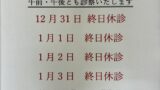 午前・午後とも診察いたします
12月31日 終日休診
1月1日 終日休診
1月2日 終日休診
1月3日 終日休診